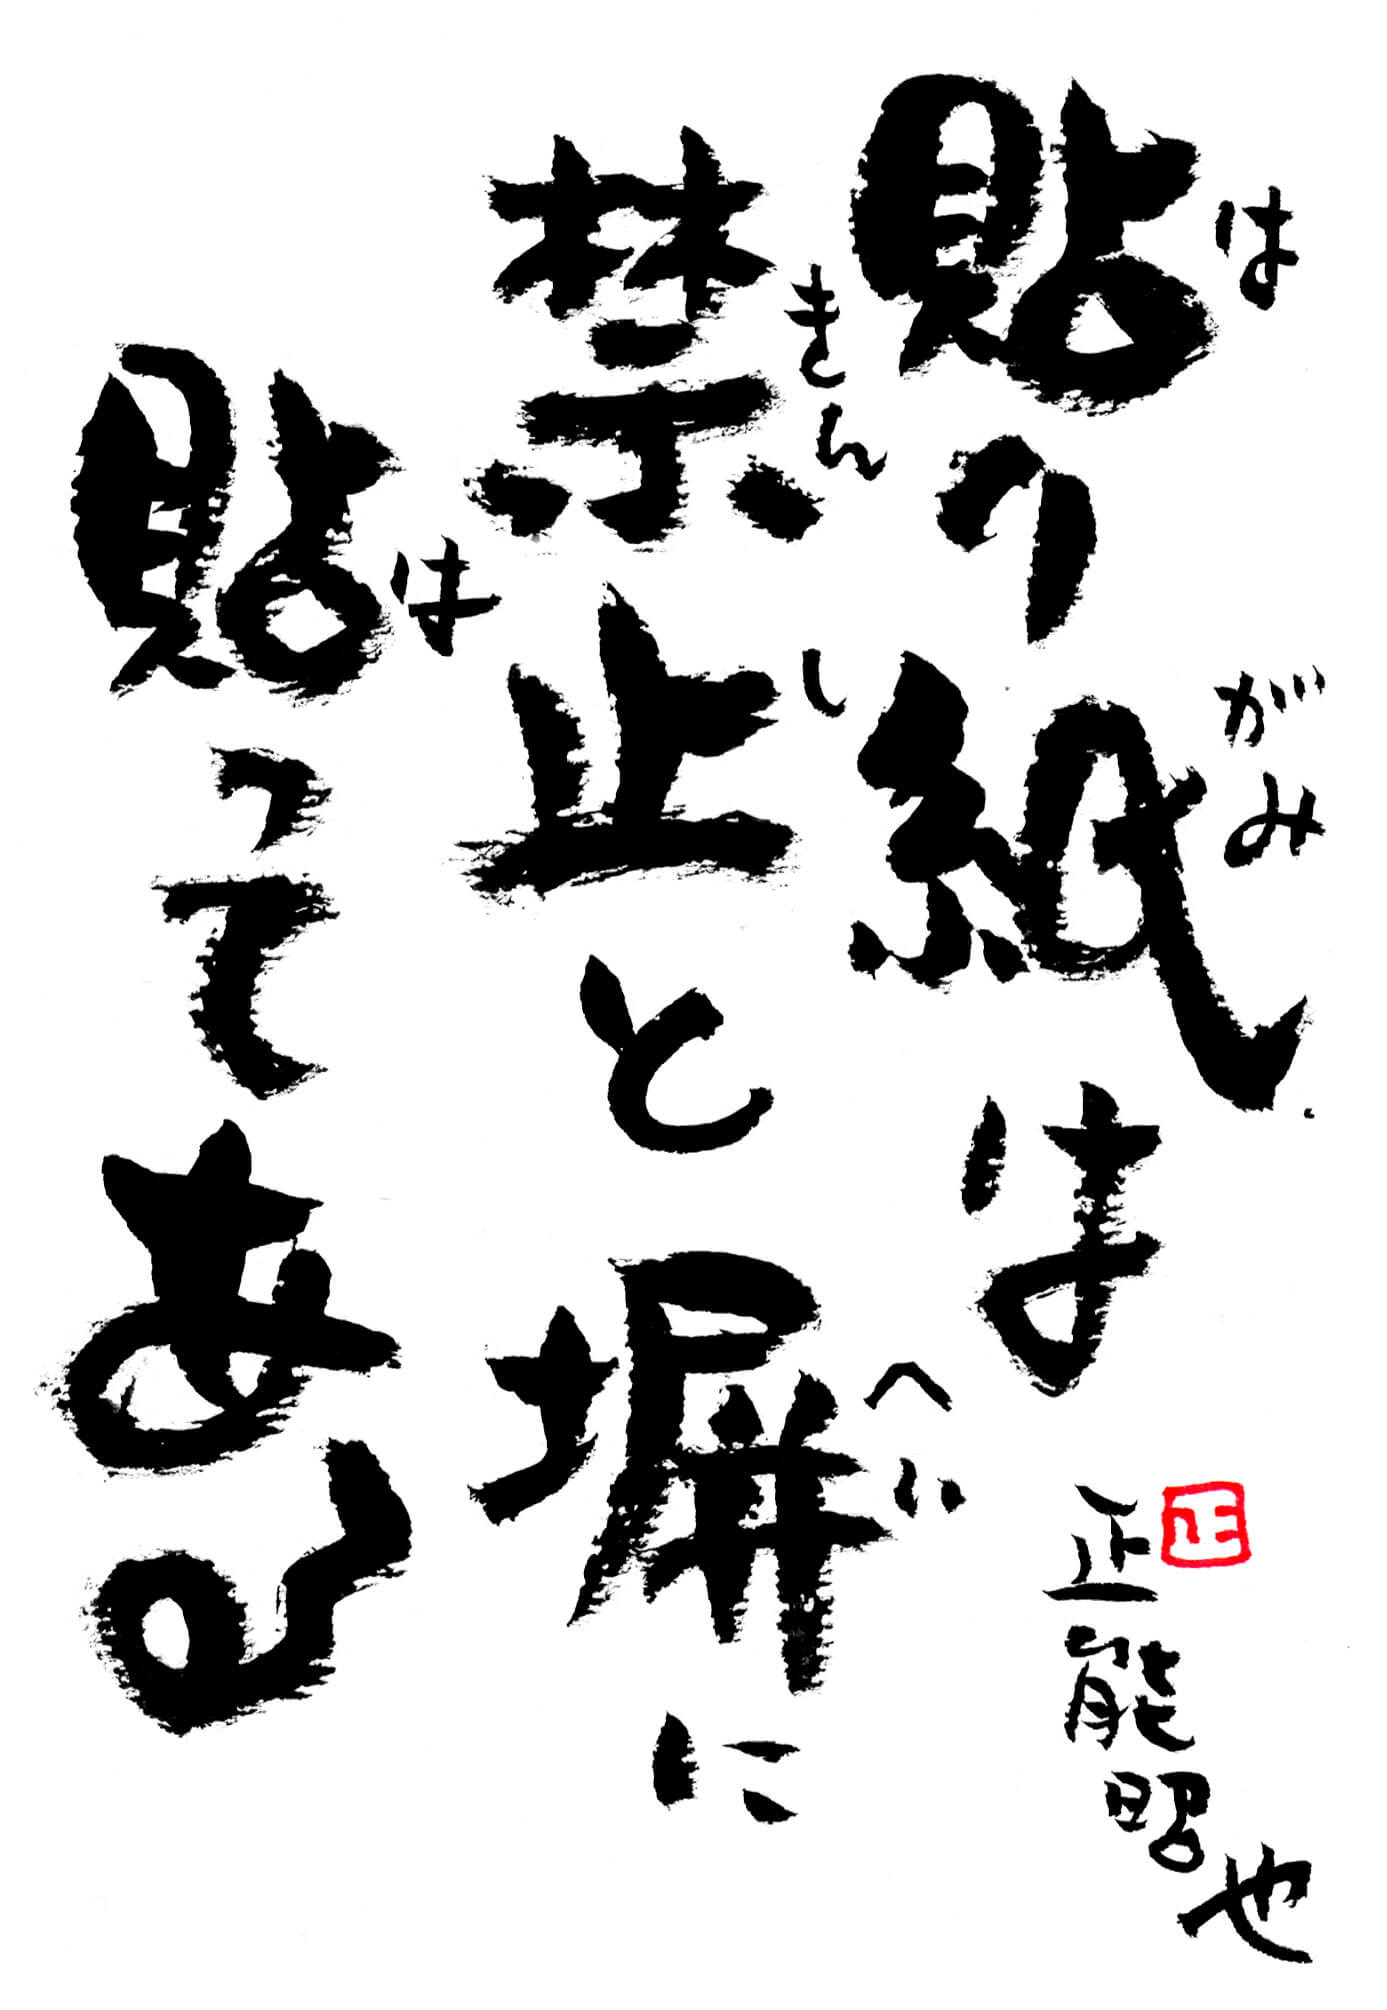 貼り紙は
は
がみ
禁止と塀に
きん
し
へい
貼ってある
は
正能昭也
正